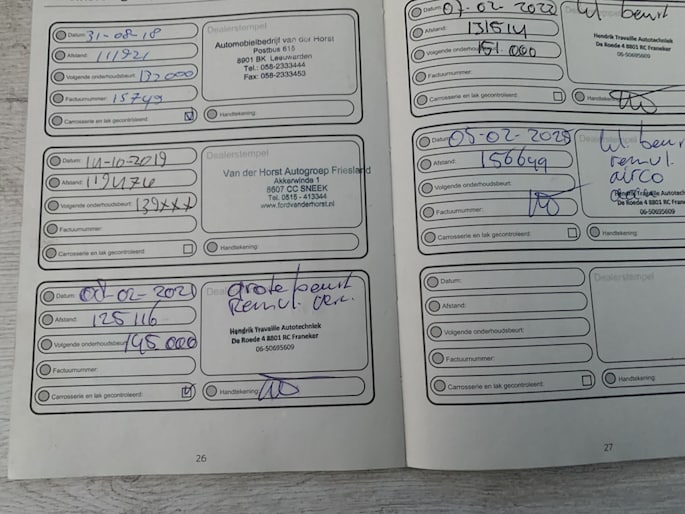 Datum: 31-08-18
Afstand: 111921
Volgende onderhoudsbeurt: 132000
Factuurnummer: 15749
Carrosserie en lak gecontroleerd:
Dealerstempel
Automobielbedrijf van der Horst
Postbus 615
8901 BK Leeuwarden
Tel.: 058-2333444
Fax: 058-2333453
Handtekening:
Datum: 14-10-2019
Afstand: 119474
Volgende onderhoudsbeurt: 139xxx
Factuurnummer:
Carrosserie en lak gecontroleerd:
Dealerstempel
Van der Horst Autogroep Friesland
Akkerwinde 1
8607 CC SNEEK
Tel. 0515 - 413344
www.fordvanderhorst.nl
Handtekening:
Datum: 08-02-2021
Afstand: 125116
Volgende onderhoudsbeurt: 145.000
Factuurnummer:
Carrosserie en lak gecontroleerd:
grote beurt
Remvl.
Hendrik Travaille Autotechniek
De Roede 4 8801 RC Franeker
06-50695609
Handtekening:
26
Datum: 07-02-2022
Afstand: 131514
Volgende onderhoudsbeurt: 151.000
Factuurnummer:
Carrosserie en lak gecontroleerd:
kl beurt
Hendrik Travaille Autotechniek
De Roede 4 8801 RC Franeker
06-50695609
Handtekening:
Datum: 05-02-2025
Afstand: 156649
Volgende onderhoudsbeurt:
Factuurnummer:
Carrosserie en lak gecontroleerd:
kl. beurt
remvl.
airco
Hendrik Travaille Autotechniek
De Roede 4 8801 RC Franeker
06-50695609
Handtekening:
Datum:
Afstand:
Volgende onderhoudsbeurt:
Factuurnummer:
Carrosserie en lak gecontroleerd:
Dealerstempel
Handtekening:
27